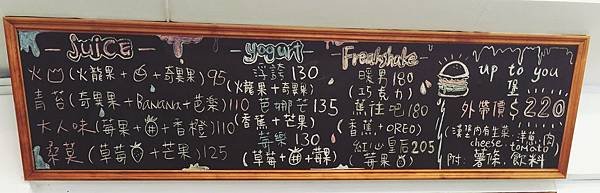 JUICE
火山 (火龍果 + + 奇異果) 95
青苔 (奇異果 + BANANA + 芭樂) 110
大人味 (莓果 + + 香橙) 110
桑莫 (草莓 + 芒果) 125
yogurt
浮誇 130
(火龍果 + 奇異果)
芭娜芒 135
(香蕉 + 芒果)
莓樂 130
(草莓 + + 莓果)
Freakshake
暖男 180
(巧克力)
蕉往吧 180
(香蕉 + OREO)
紅心皇后 205
(莓果)
up to you
堡
外帶價 $220
(漢堡內有生菜、洋蔥、肉
cheese、tomato)
附: 薯條、飲料